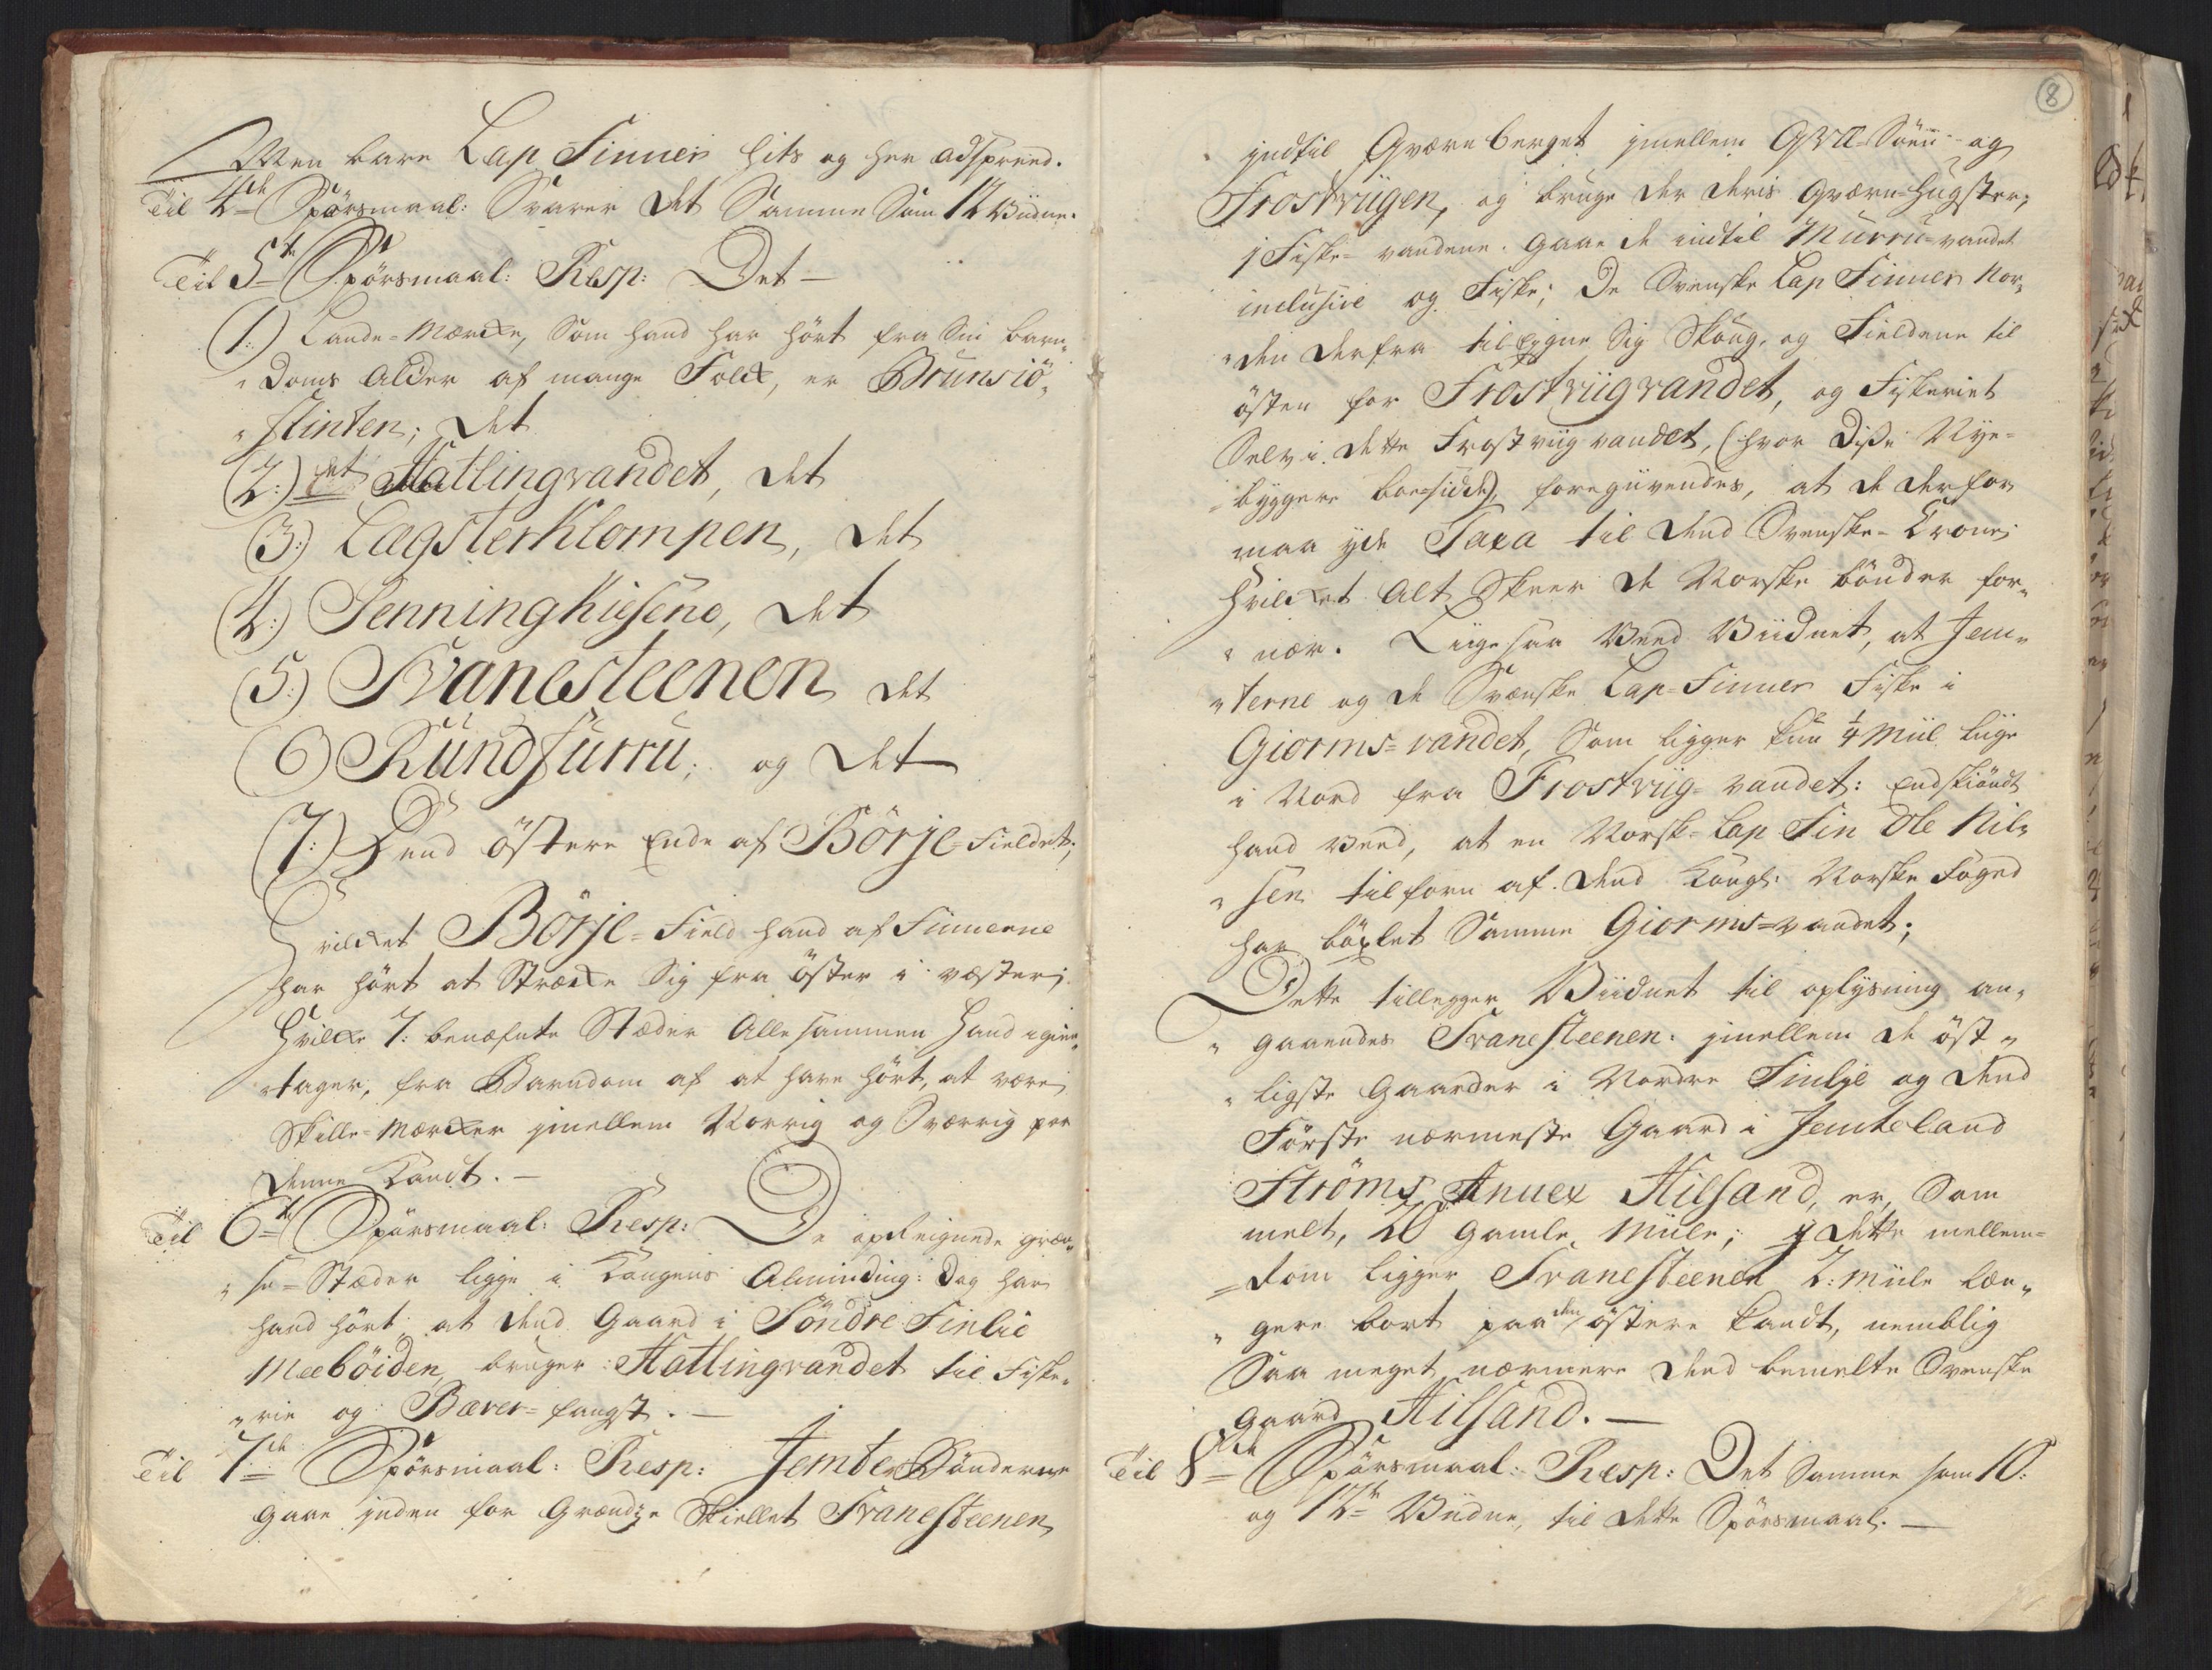 Men bare Lap Finner hits og her adspreed.
Til 4de Spörsmaal: Svarer det Samme Som 12 Viidne.
Til 5te Spörsmaal: Resp: Det —
(1.) Lande-Mærcke, Som hand har hört fra Sin barn„
„doms Alder af mange Folck, er Brunsiö„
„flinten; det
(2:) det Hatlingvandet, det
(3:) Lægsterklompen, det
(4:) Penningkiisene, det
(5:) Svanesteenen det
(6) Rundsurru; og det
(7:) Dend östere Ende af Börje-Fieldet;
Hvilcket Börje-Field hand af Finnerne
har hört at Stræcke Sig fra öster i væster;
Hvilcke 7: benæfnte Stæder Allesammen hand igien„
„tager, fra Barndom af at have hört, at være
Skille-Mærcker imellem Norrig og Sverrig paa
denne Kandt. —
Til 6te Spörsmaal: Resp: De opteignede græn„
„se-Stæder ligge i Kongens Alminding: Dog har
hand hört at dend Gaard i Söndre Finlie
Meeböiden, bruger Hatlingvandet til Fiske„
„rie og Bæver-fangst. —
Til 7de Spörsmaal: Resp: Jemte Bönderne
gaar inden for Grændze Skiellet Svanesteenen
8
indtil Qværnberget imellem Qvæ-Söen og
Frostviigen, og bruge der deris Qværn-Hugster,
i Fiske-vandene. Gaar de indtil Murru-vandet
inclusive og Fiske; De Svenske Lap Finner Nor„
„den derfra tilEygne Sig Skoug- og Fieldene til
östen for Frostviigvandet, og Fiskeriet
Selv i dette Frostviigvandet, (hvor disse Nye-
-byggere boesidde), foregiivendes, at de derfor
maa yde Taxa til dend Svenske-Krone;
Hvilcket Alt Skeer de Norske bönder for„
„nær. Liigesaa Veed Viidnet, at Jem„
„terne og de Svenske Lap-Finner Fiske i
Giorms-vandet, Som ligger kun ¼ Miil liige
i Nord fra Frostviig-vandet: Endskiöndt
hand veed, at en Norsk-Lap Fin Ole Nil„
„sen tilforn af dend Kongl: Norske Foged
har böxlet Samme Giorms-vandet;
Dette tillegger Viidnet til oplysning an„
„gaaendes Svanesteenen: imellem de öst„
„ligste Gaarder i Nordre Finlje og dend
Förste nærmeste Gaard i Jemteland
Ströms Annex Hilsand, er, Som
melt, 20 gamle Miile; i dette mellem-
-dom ligger Svanesteenen 2: Miile læn„
„gere bort paa den östere Kandt, nemblig
Saa meget nærmere dend bemelte Svenske
Gaard Hilsand. —
Til 8de Spörsmaal: Resp: Det Samme som 10:
og 12te Viidne, til dette Spörsmaal. —